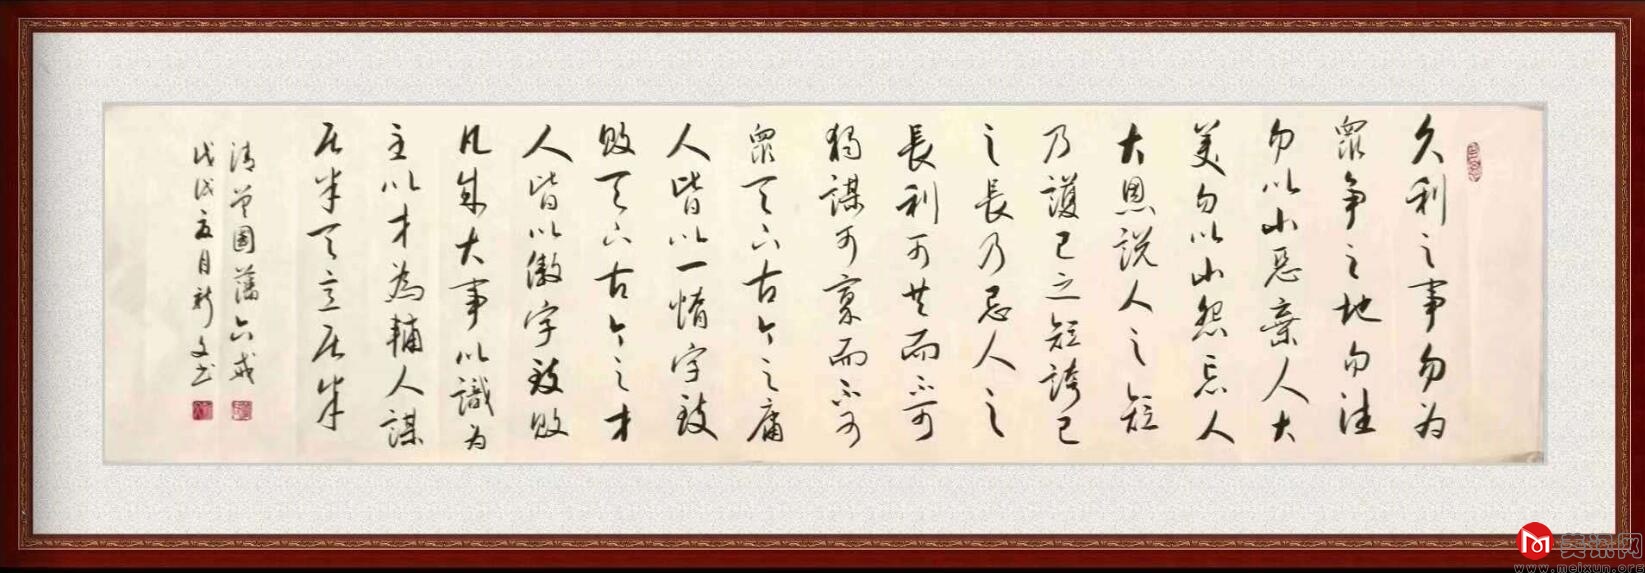 久利之事勿为
眾争之地勿往
勿以小惡棄人大
美勿以小怨忘人
大恩説人之短
乃護己之短誇己
之長乃忌人之
長利可共而不可
獨謀可寡而不可
眾天下古今之庸
人皆以一惰字致
敗天下古今之才
人皆以傲字致敗
凡成大事以識为
主以才為輔人謀
居半天意居半
清曾國藩六戒
戊戌夏月新文书
美讯网
www.meixun.org